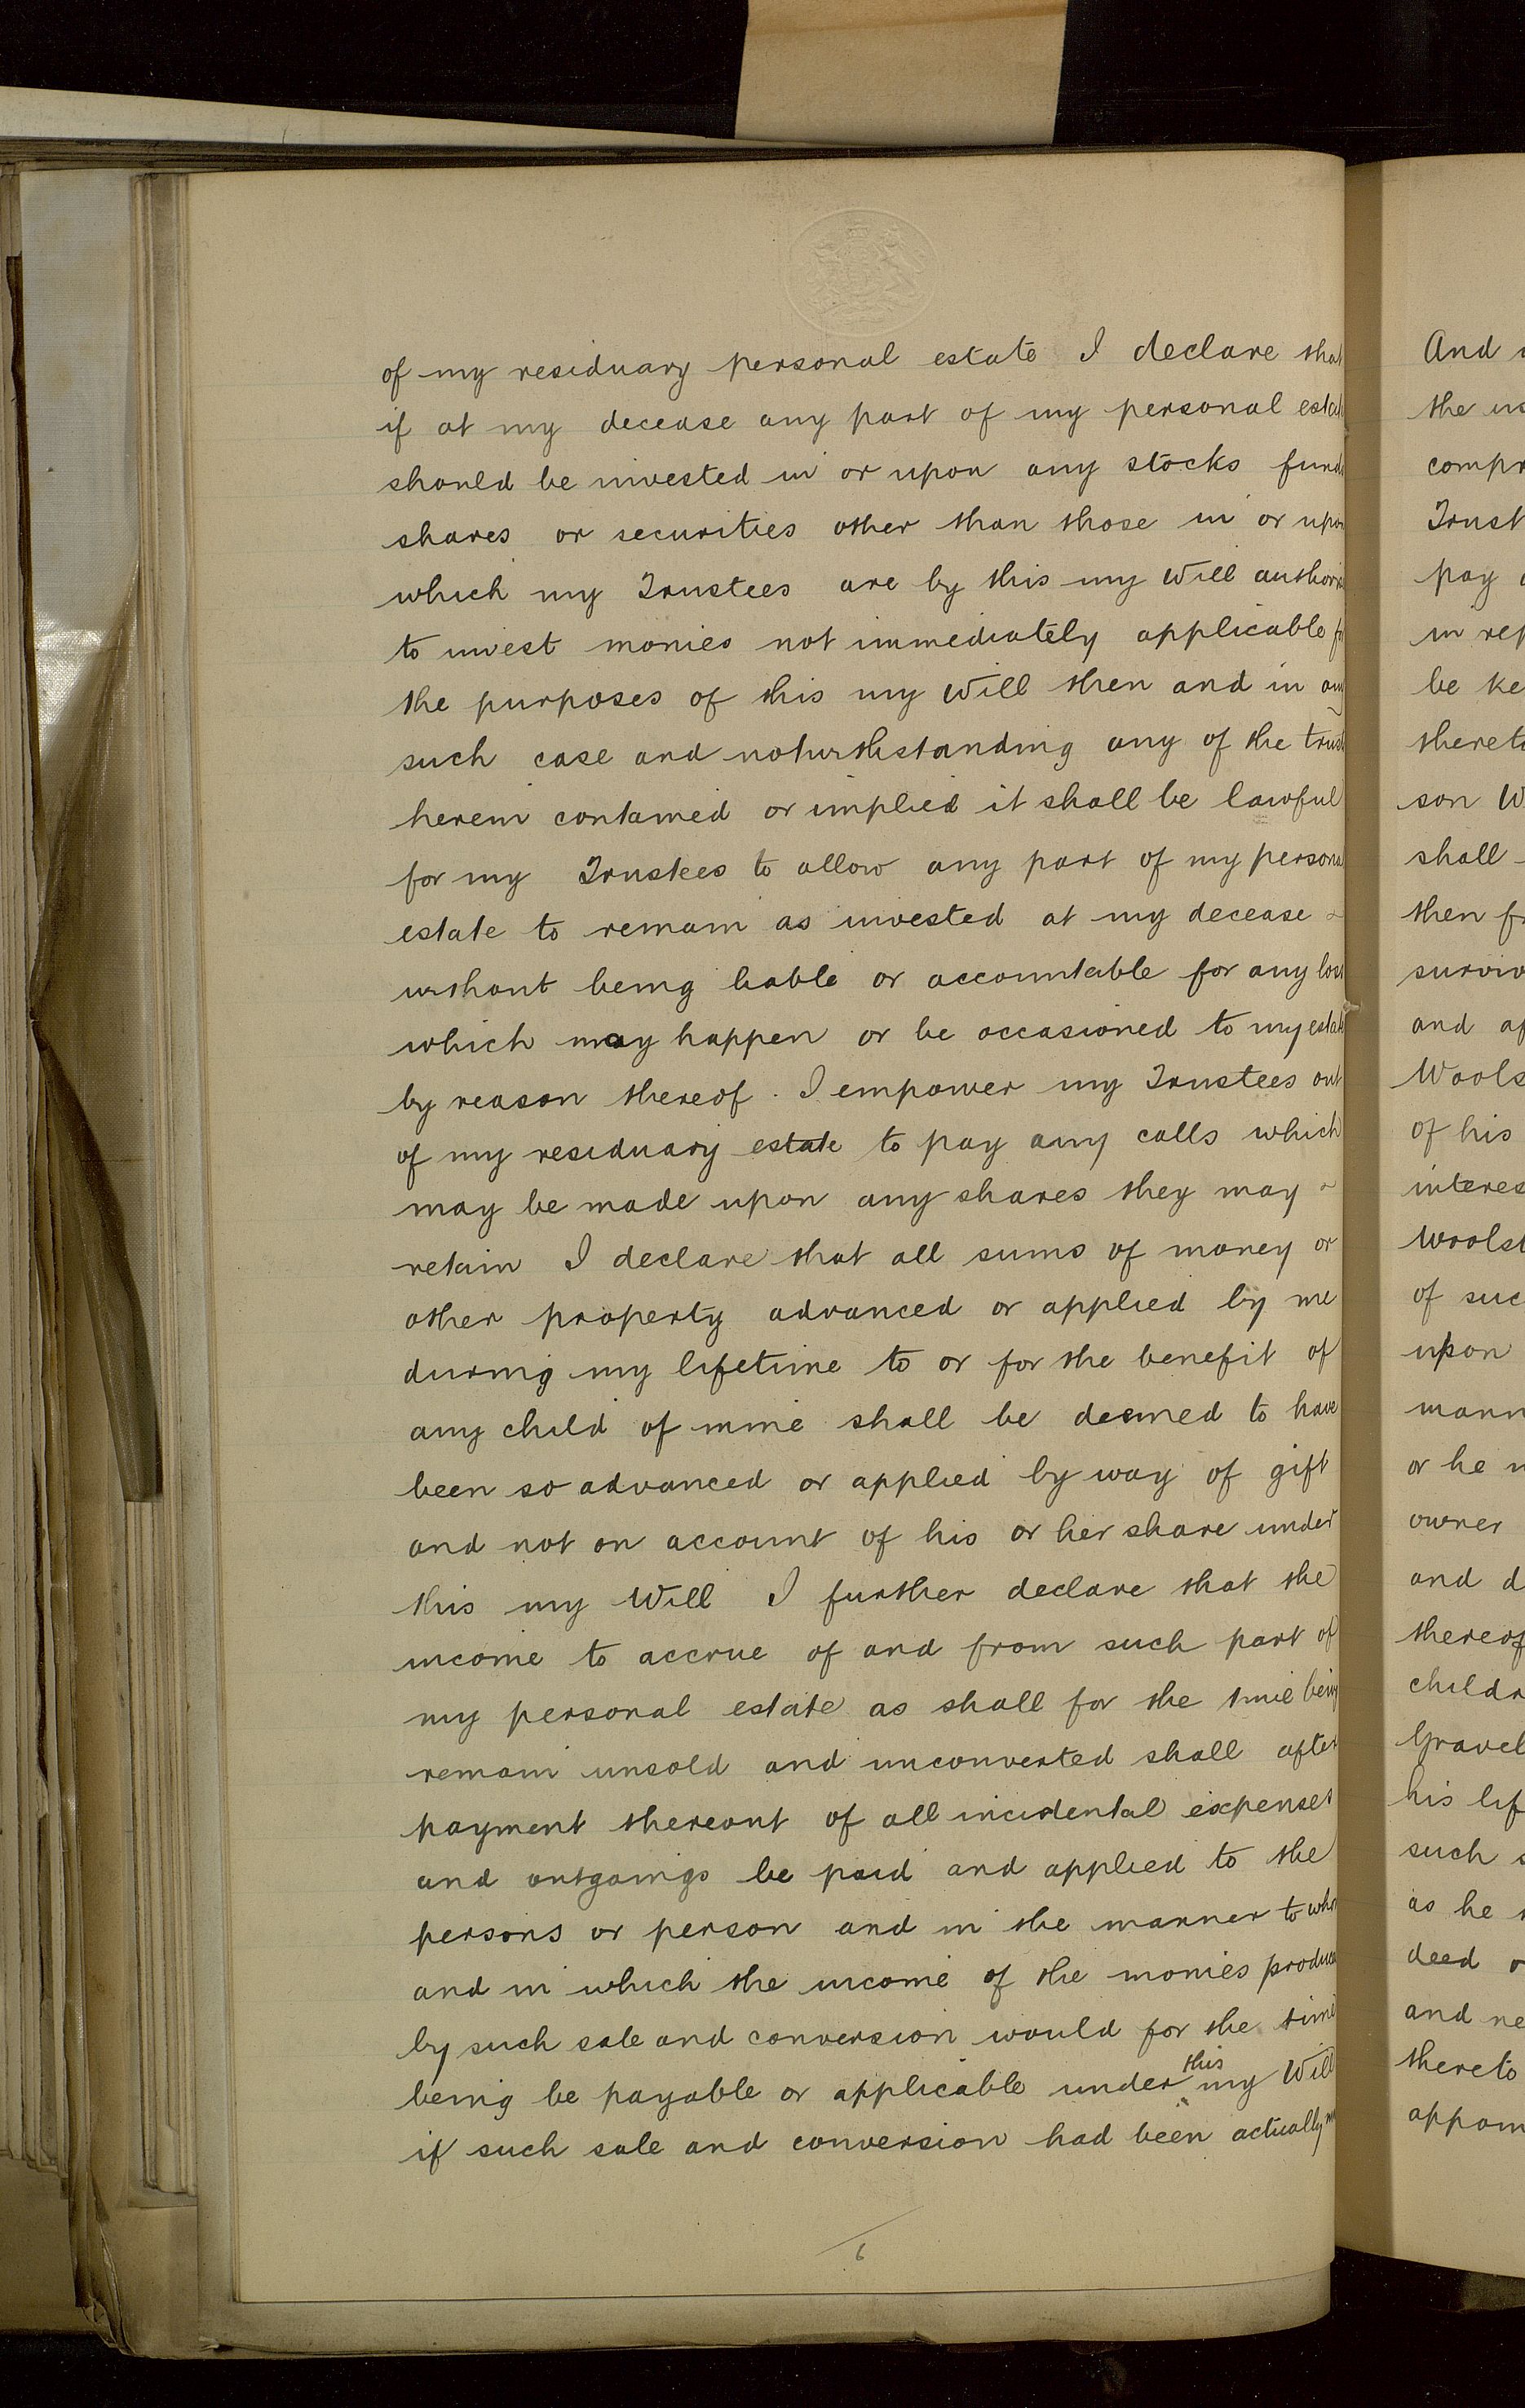 of my residuary personal estate I declare that
if at my decease any part of my personal estate
should be invested in or upon any stocks funds
shares or securities other than those in or upon
which my Trustees are by this my Will authorized
to invest monies not immediately applicable for
the purposes of this my Will then and in any
such case and notwithstanding any of the trusts
herein contained or implied it shall be lawful
for my Trustees to allow any part of my personal
estate to remain as invested at my decease
without being liable or accountable for any loss
which may happen or be occasioned to my estate
by reason thereof. I empower my Trustees out
of my residuary estate to pay any calls which
may be made upon any shares they may
retain I declare that all sums of money or
other property advanced or applied by me
during my lifetime to or for the benefit of
any child of mine shall be deemed to have
been so advanced or applied by way of gift
and not on account of his or her share under
this my Will I further declare that the
income to accrue of and from such part of
my personal estate as shall for the time being
remain unsold and unconverted shall after
payment thereout of all incidental expenses
and outgoings be paid and applied to the
persons or person and in the manner to whom
and in which the income of the monies produced
by such sale and conversion would for the time
being be payable or applicable under this my Will
if such sale and conversion had been actually
6
And
the
compr
Trust
pay
in rep
be ke
thereto
son W
shall
then fr
surviv
and af
Wools
of his
interes
Woolst
of suc
upon
mann
or he
owner
and d
thereof
childr
Gravel
his lif
such s
as he
deed o
and ne
thereto
appoin